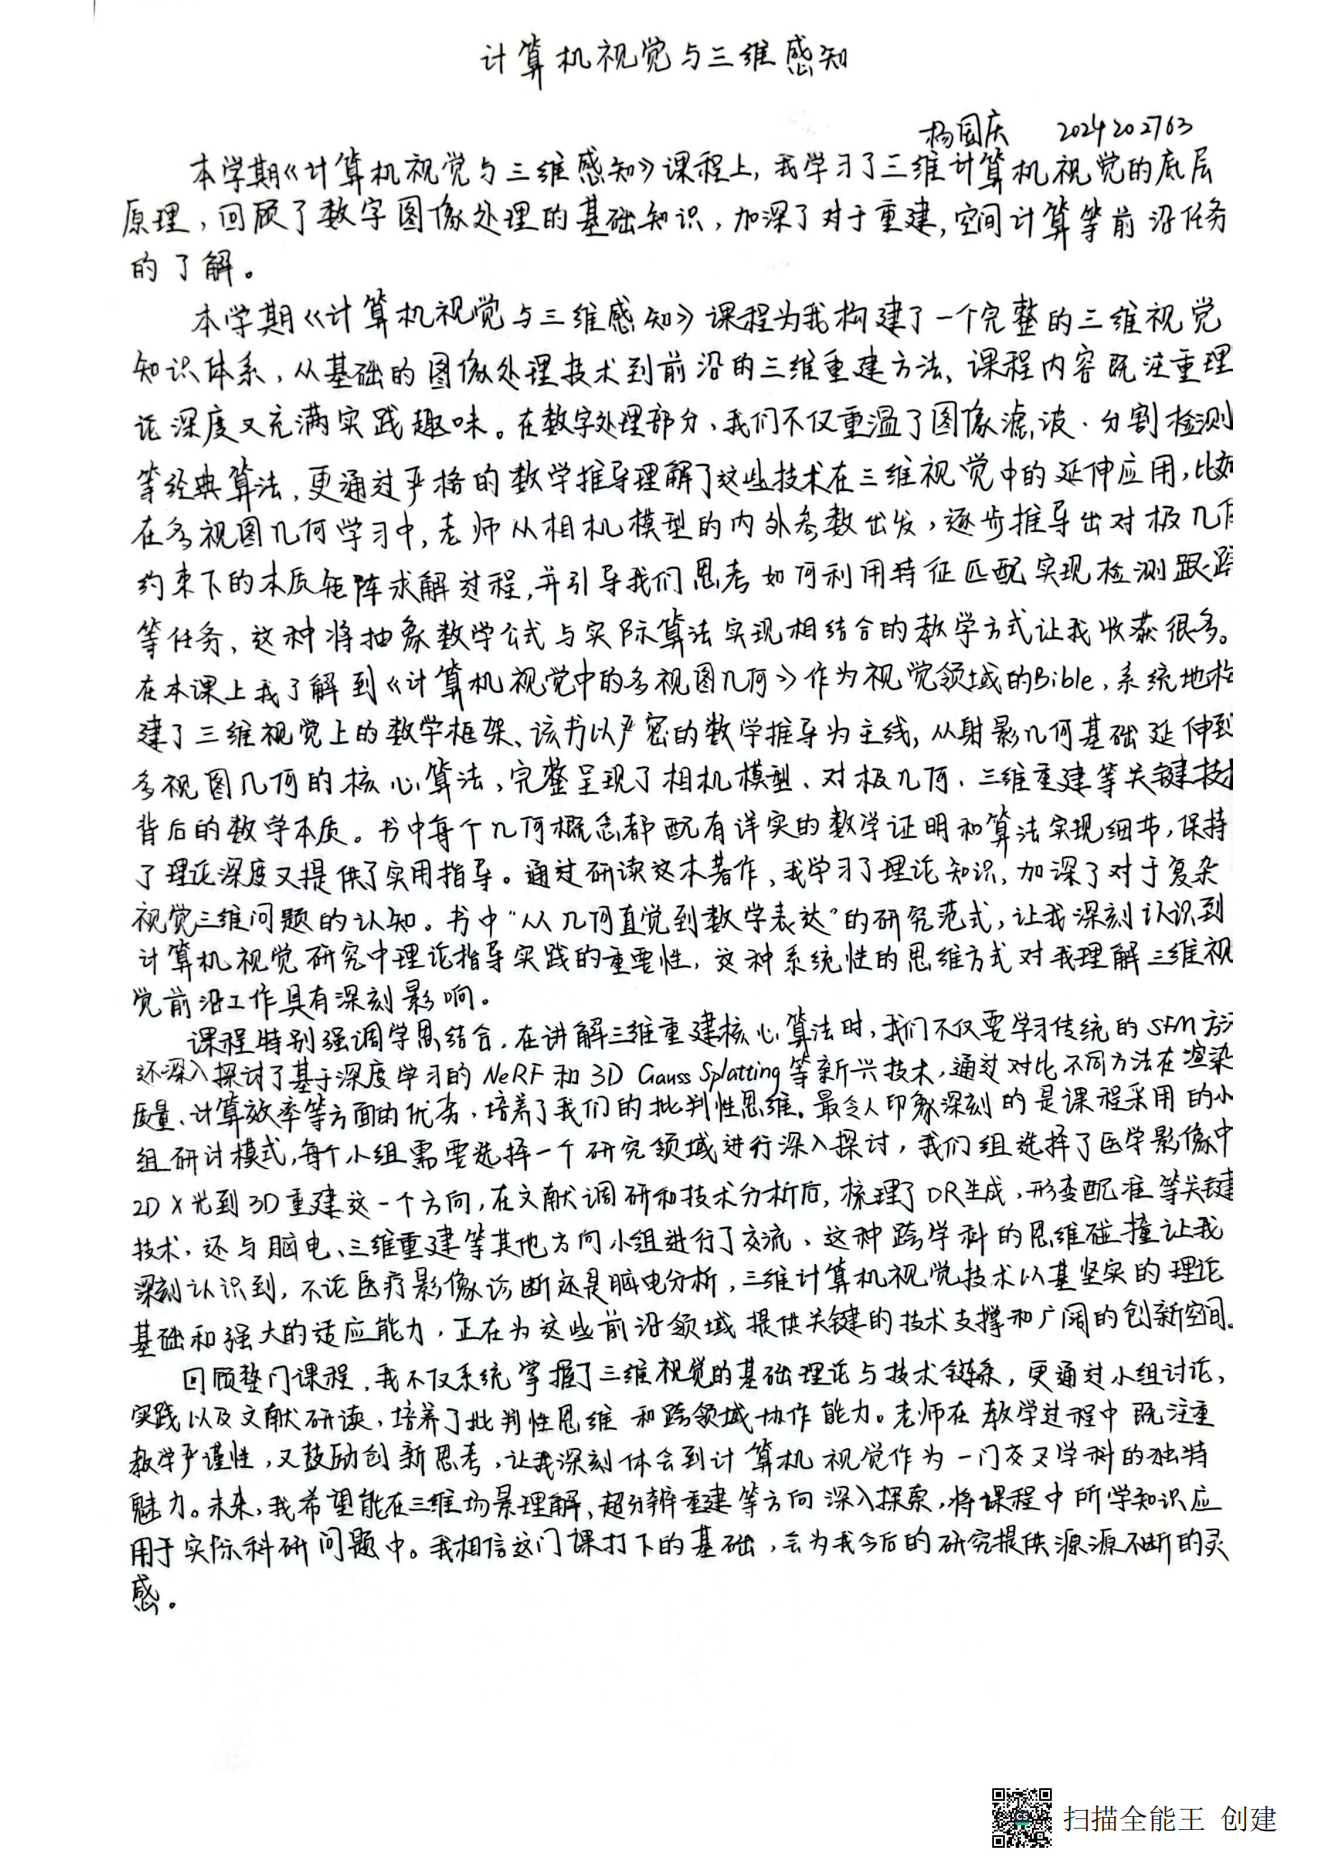 计算机视觉与三维感知
杨国庆 2024202763
本学期《计算机视觉与三维感知》课程上,我学习了三维计算机视觉的底层
原理,回顾了数字图像处理的基础知识,加深了对于重建,空间计算等前沿任务
的了解。
本学期《计算机视觉与三维感知》课程为我构建了一个完整的三维视觉
知识体系,从基础的图像处理技术到前沿的三维重建方法、课程内容既注重理
论深度又充满实践趣味。在数字处理部分,我们不仅重温了图像滤波.分割检测
等经典算法,更通过严格的数学推导理解了这些技术在三维视觉中的延伸应用,比如
在多视图几何学习中,老师从相机模型的内外参数出发,逐步推导出对极几何
约束下的本质矩阵求解过程,并引导我们思考如何利用特征匹配实现检测跟踪
等任务、这种将抽象数学公式与实际算法实现相结合的教学方式让我收获很多。
在本课上我了解到《计算机视觉中的多视图几何》作为视觉领域的Bible,系统地构
建了三维视觉上的数学框架、该书以严密的数学推导为主线,从射影几何基础延伸到
多视图几何的核心算法,完整呈现了相机模型、对极几何、三维重建等关键技
背后的数学本质。书中每个几何概念都配有详实的数学证明和算法实现细节,保持
了理论深度又提供了实用指导。通过研读这本著作,我学习了理论知识,加深了对于复杂
视觉三维问题的认知。书中“从几何直觉到数学表达”的研究范式,让我深刻认识到
计算机视觉研究中理论指导实践的重要性,这种系统性的思维方式对我理解三维视
觉前沿工作具有深刻影响。
课程特别强调学思结合,在讲解三维重建核心算法时,我们不仅要学习传统的SFM方法
还深入探讨了基于深度学习的NeRF和3D Gauss Splatting等新兴技术,通过对比不同方法在渲染
质量、计算效率等方面的优劣,培养了我们的批判性思维。最令人印象深刻的是课程采用的小
组研讨模式,每个小组需要选择一个研究领域进行深入探讨,我们组选择了医学影像中
2D X光到3D重建这一个方向,在文献调研和技术分析后,梳理了DR生成,形变配准等关键
技术,还与脑电、三维重建等其他方向小组进行了交流、这种跨学科的思维碰撞让我
深刻认识到,不论医疗影像诊断还是脑电分析,三维计算机视觉技术以其坚实的理论
基础和强大的适应能力,正在为这些前沿领域提供关键的技术支撑和广阔的创新空间。
回顾整门课程,我不仅系统掌握了三维视觉的基础理论与技术链条,更通过小组讨论,
实践以及文献研读,培养了批判性思维和跨领域协作能力。老师在教学过程中既注重
教学严谨性,又鼓励创新思考,让我深刻体会到计算机视觉作为一门交叉学科的独特
魅力。未来,我希望能在三维场景理解、超分辨重建等方向深入探索,将课程中所学知识应
用于实际科研问题中。我相信这门课打下的基础,会为我今后的研究提供源源不断的灵
感。
扫描全能王 创建